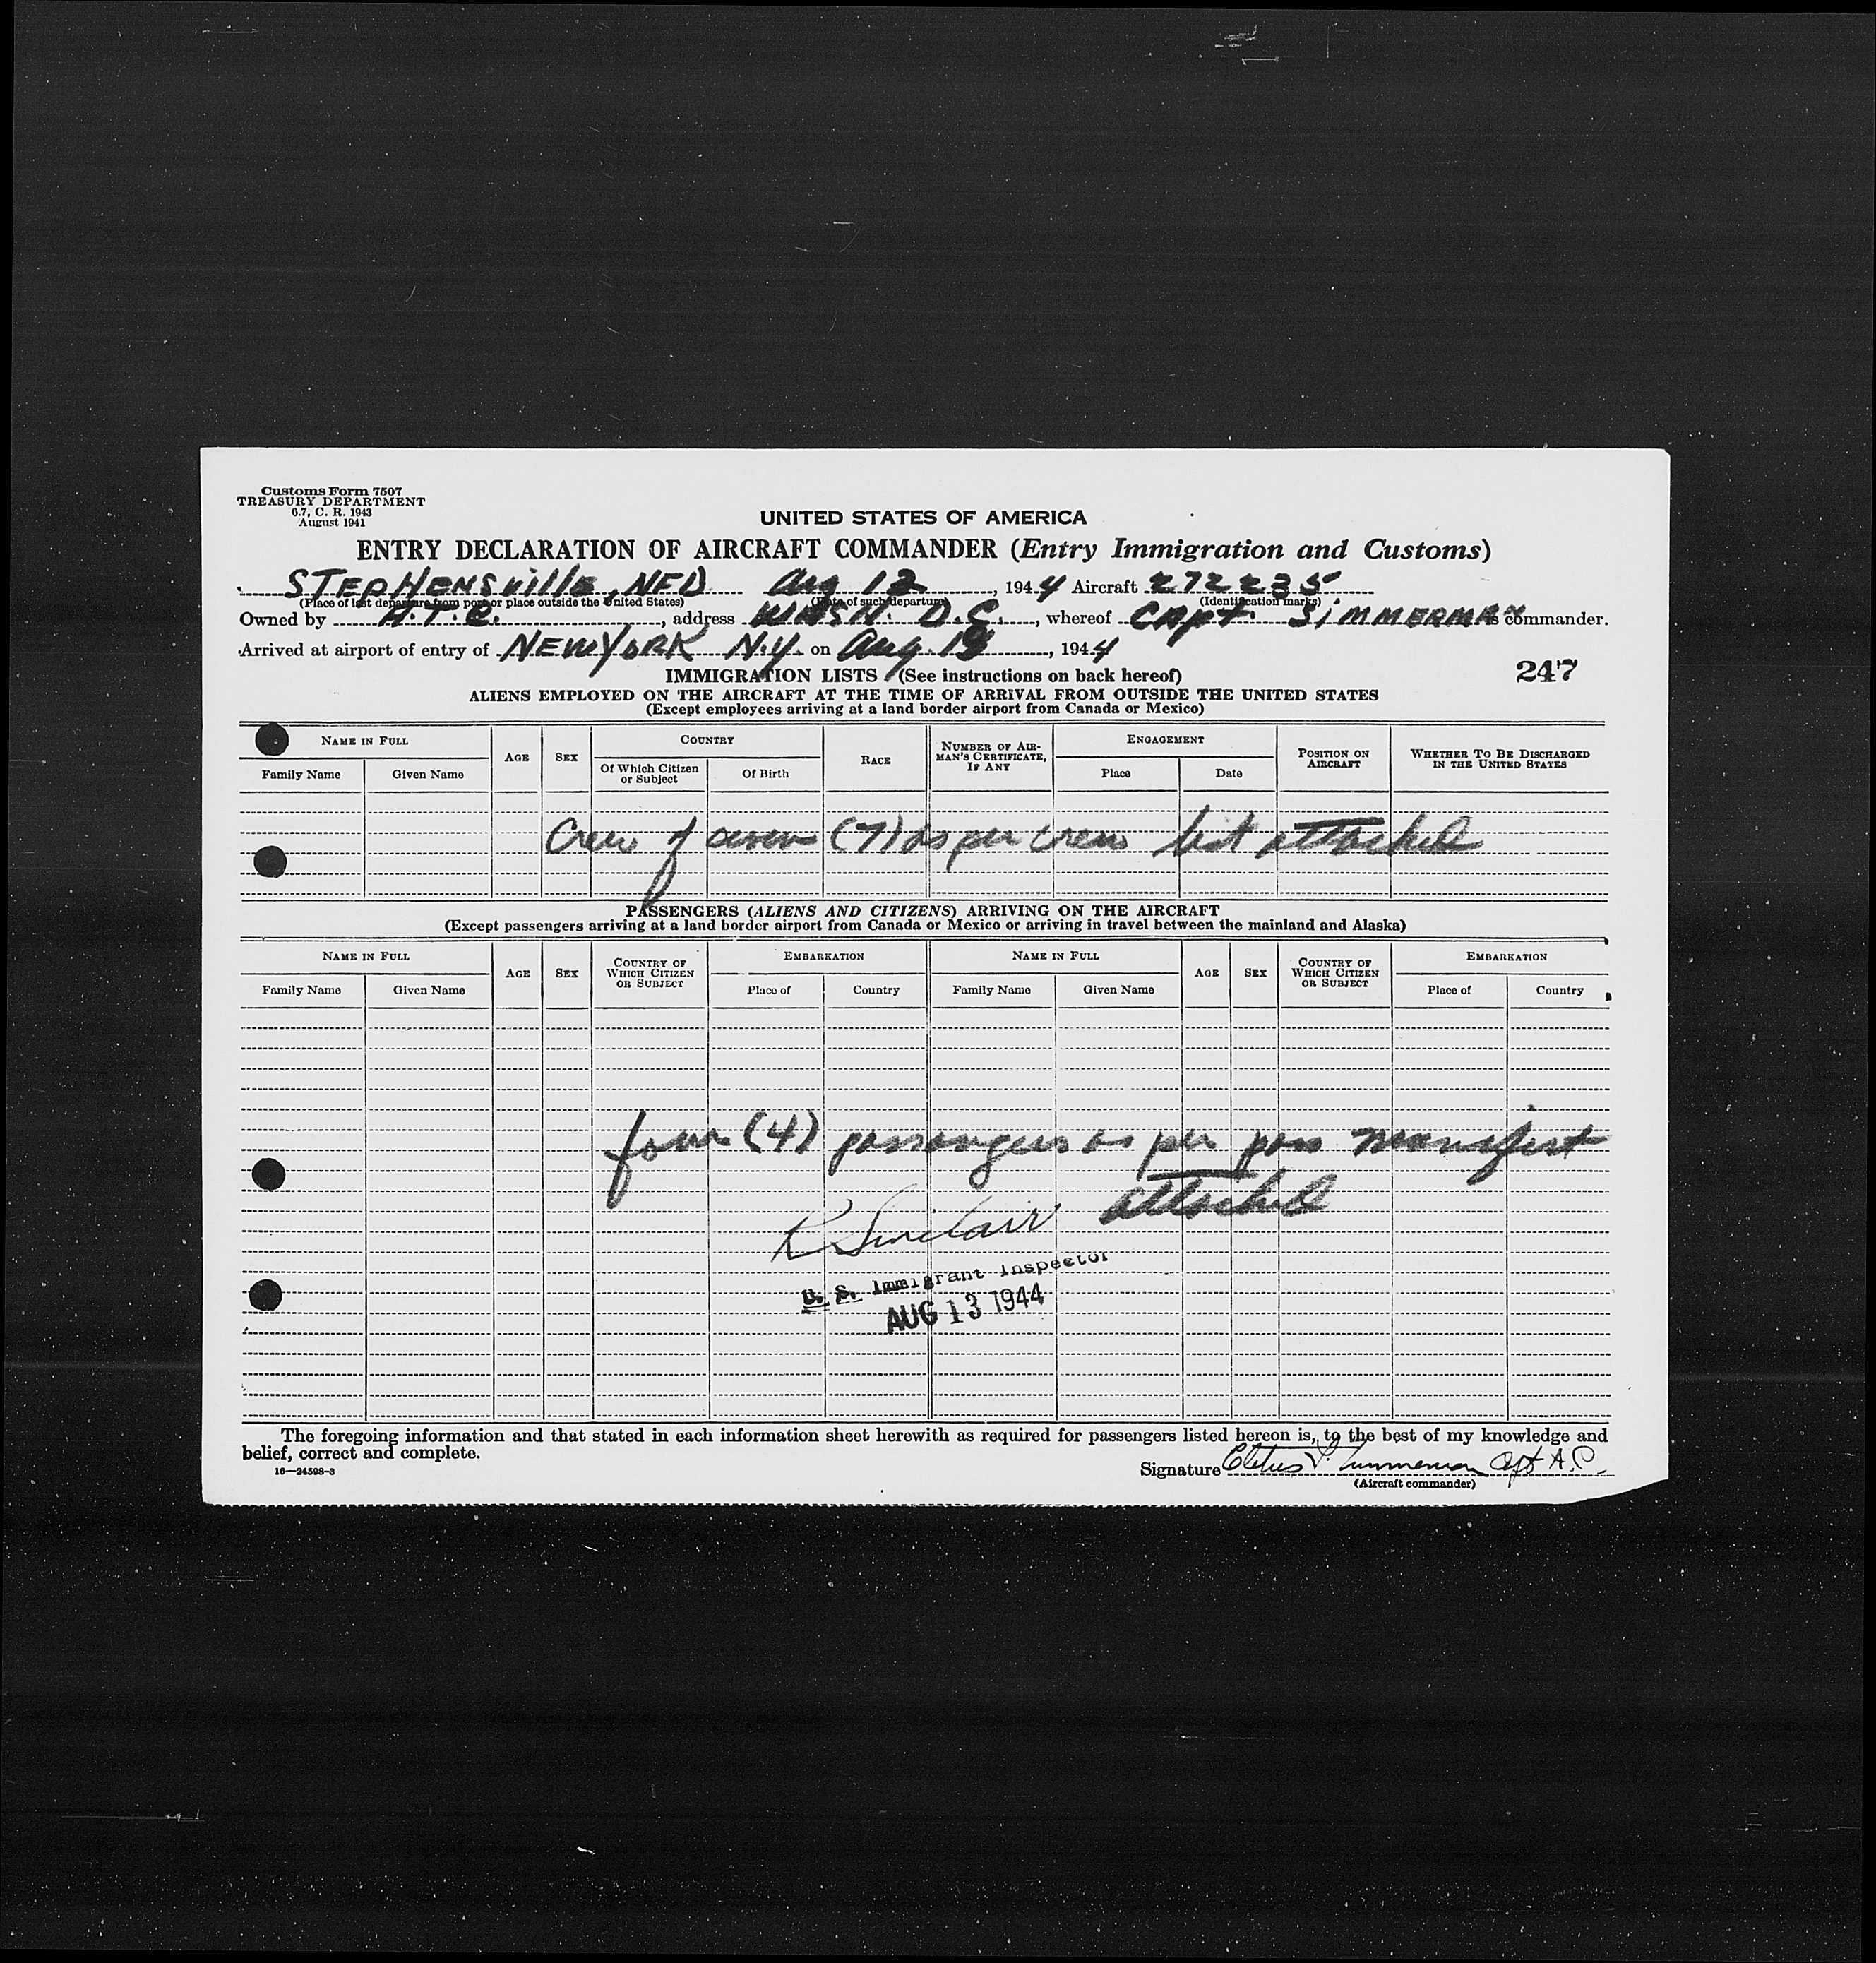 Customs Form 7507
TREASURY DEPARTMENT
6.7, C. R. 1943
August 1941
UNITED STATES OF AMERICA
ENTRY DECLARATION OF AIRCRAFT COMMANDER (Entry Immigration and Customs)
STEPHENSville, NFD Aug 12, 1944 Aircraft 272235
(Place of last departure from port or place outside the United States) (Date of such departure) (Identification marks)
Owned by A.T.C., address WASH. D.C., whereof CAPt. ZIMMERMAN is commander.
Arrived at airport of entry of NEW YORK N.Y. on Aug. 13, 1944
IMMIGRATION LISTS (See instructions on back hereof) 247
ALIENS EMPLOYED ON THE AIRCRAFT AT THE TIME OF ARRIVAL FROM OUTSIDE THE UNITED STATES
(Except employees arriving at a land border airport from Canada or Mexico)
NAME IN FULL AGE SEX COUNTRY RACE NUMBER OF AIRMAN'S CERTIFICATE, IF ANY ENGAGEMENT POSITION ON AIRCRAFT WHETHER TO BE DISCHARGED IN THE UNITED STATES
Family Name Given Name Of Which Citizen or Subject Of Birth Place Date
Crew of seven (7) as per crew list attached
PASSENGERS (ALIENS AND CITIZENS) ARRIVING ON THE AIRCRAFT
(Except passengers arriving at a land border airport from Canada or Mexico or arriving in travel between the mainland and Alaska)
NAME IN FULL AGE SEX COUNTRY OF WHICH CITIZEN OR SUBJECT EMBARKATION NAME IN FULL AGE SEX COUNTRY OF WHICH CITIZEN OR SUBJECT EMBARKATION
Family Name Given Name Place of Country Family Name Given Name Place of Country
four (4) passengers as per pass manifest
attached
R Sinclair
U. S. Immigrant Inspector
AUG 13 1944
The foregoing information and that stated in each information sheet herewith as required for passengers listed hereon is, to the best of my knowledge and
belief, correct and complete.
16—24598-3
Signature Cletus F. Zimmerman Capt A.C.
(Aircraft commander)